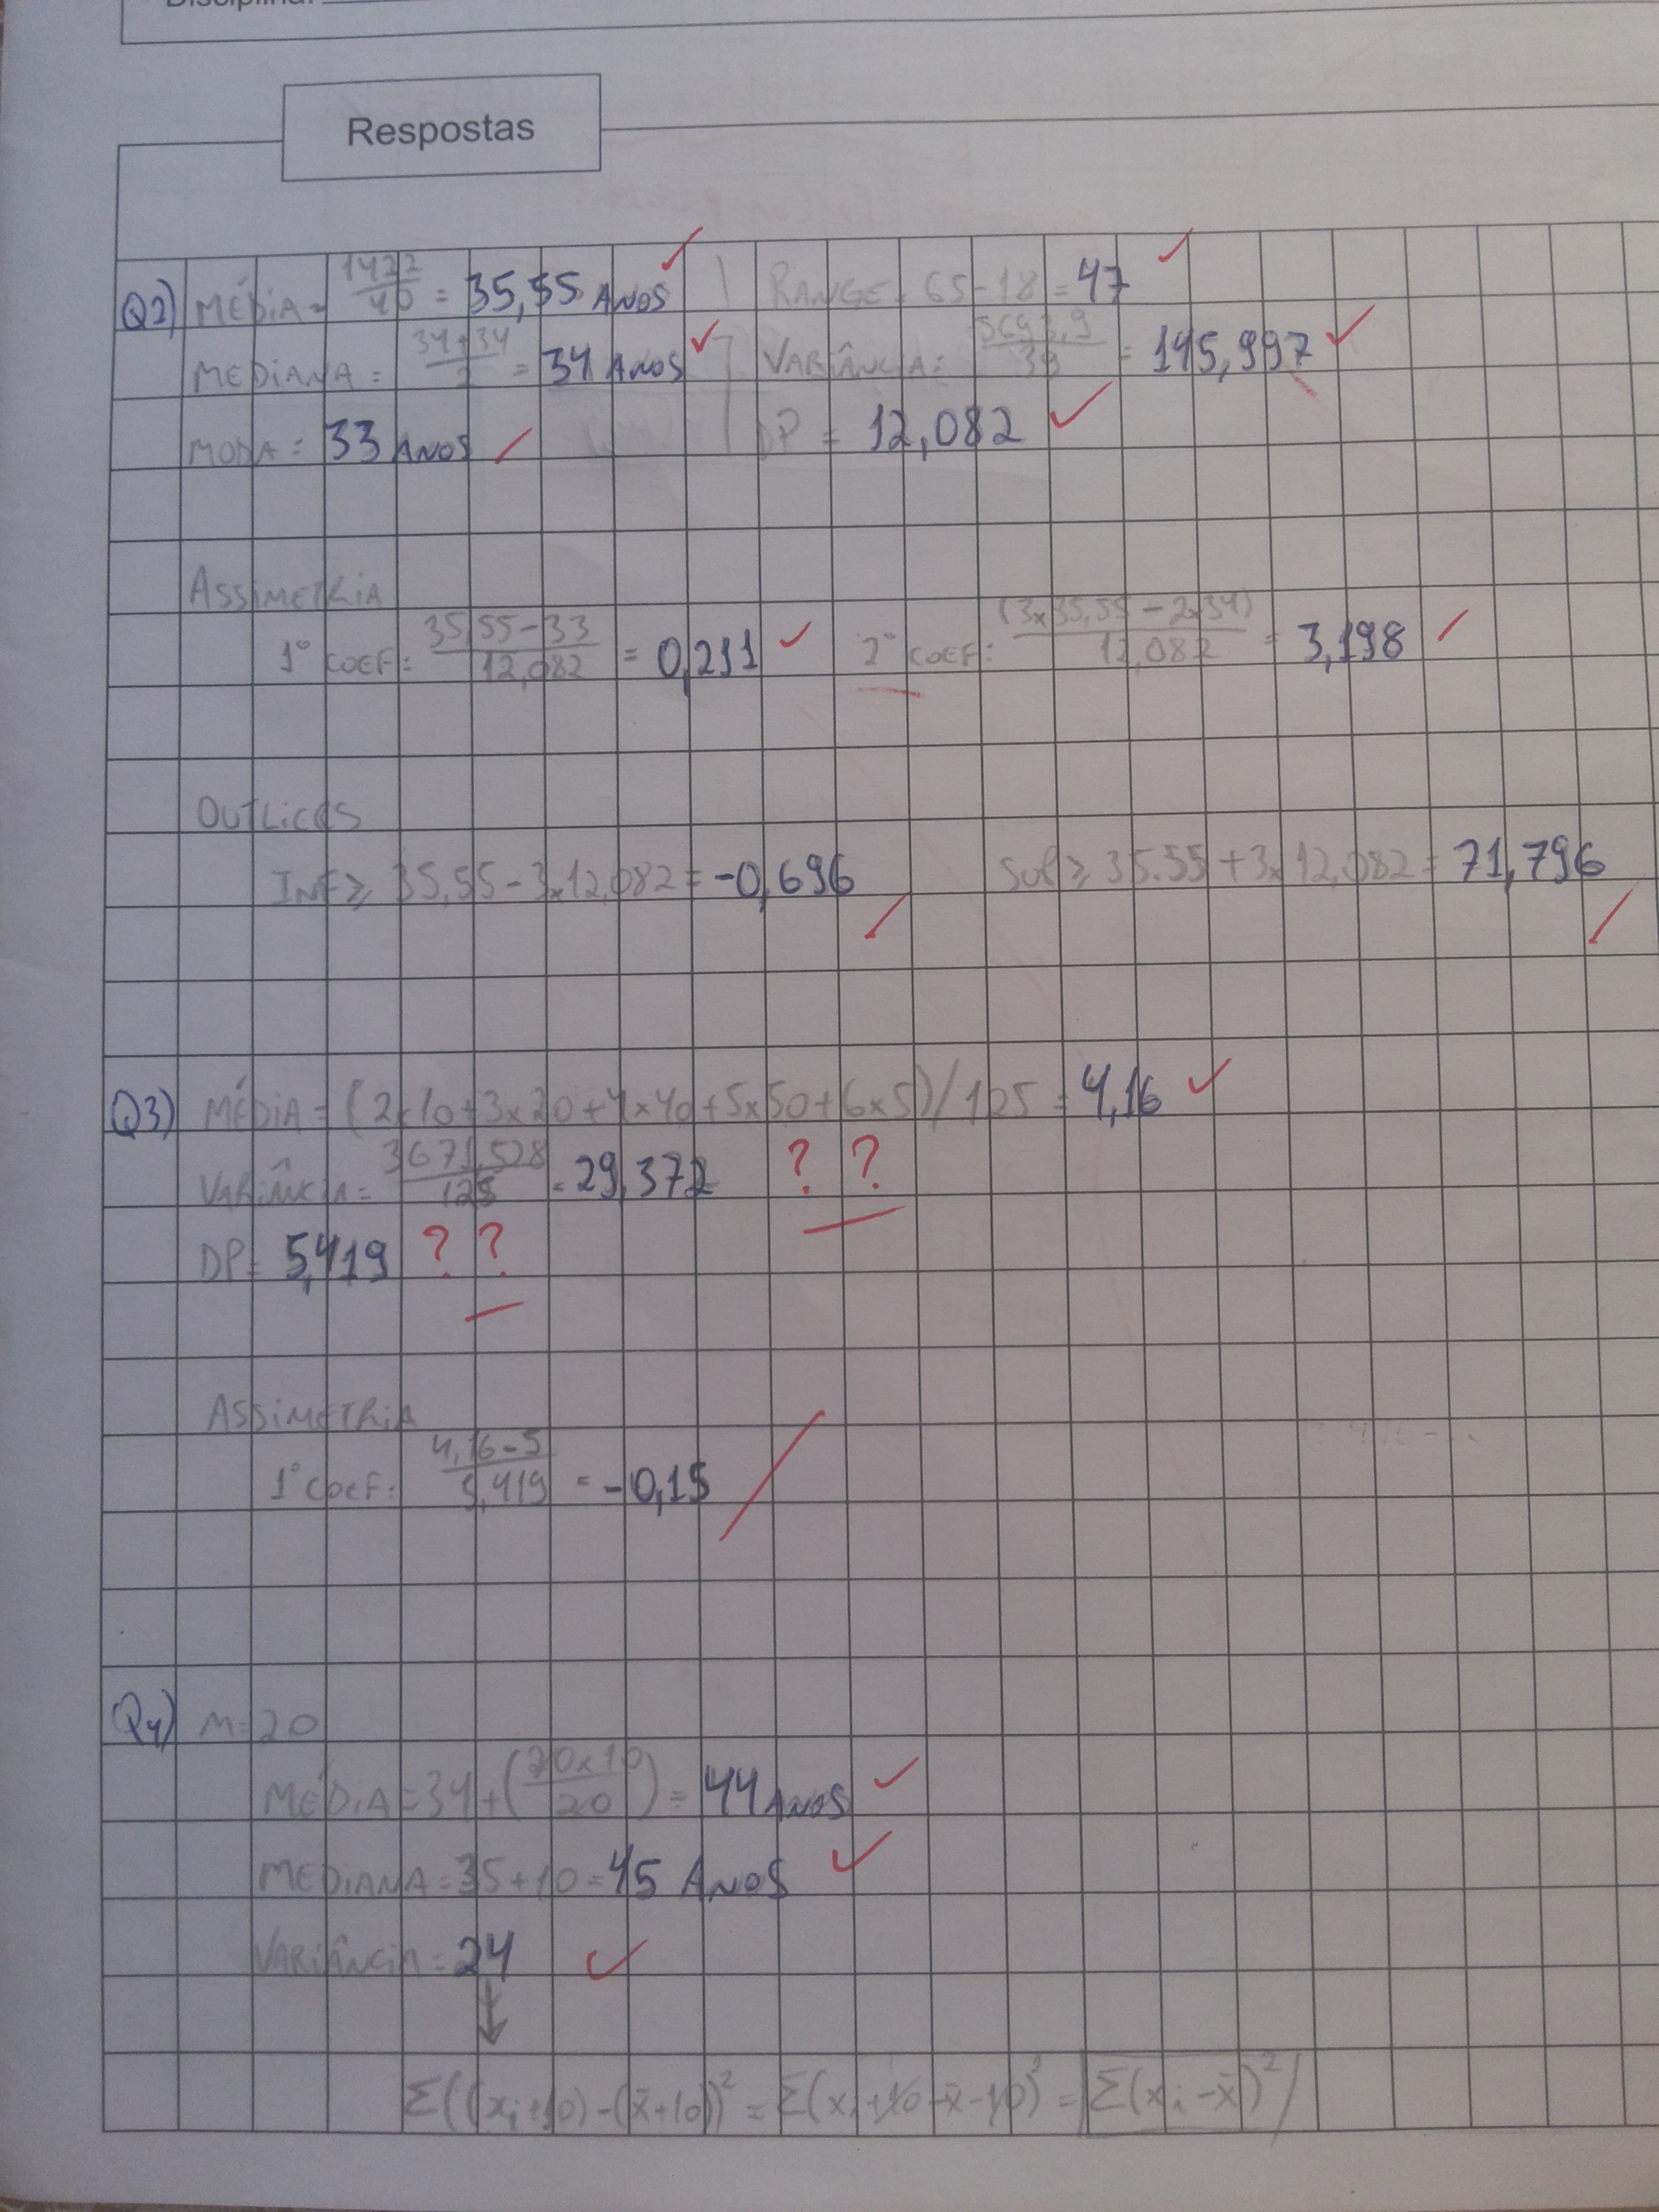 Disciplina:
Respostas
Q2) MÉDIA = 1422/40 = 35,55 ANOS | RANGE = 65-18 = 47
MEDIANA = 34+34/2 = 34 ANOS | VARIÂNCIA = 5693,9/39 = 145,997
MODA = 33 ANOS | DP = 12,082
ASSIMETRIA
1° COEF: 35,55-33/12,082 = 0,211 2° COEF: (3x35,55 - 2x34)/12,082 = 3,198
OUTLIERS
INF ≥ 35,55 - 3x12,082 = -0,696 SUP ≥ 35.55 + 3x12,082 = 71,796
Q3) MÉDIA = (2x10+3x20+4x40+5x50+6x5)/125 = 4,16
VARIÂNCIA = 3671,528/125 = 29,372 ? ?
DP = 5,419 ? ?
ASSIMETRIA
1° COEF: 4,16-5/5,419 = -0,15
Q4) M=20
MÉDIA = 34 + (20x10/20) = 44 ANOS
MEDIANA = 35+10 = 45 ANOS
VARIÂNCIA = 24
Σ((xi+10)-(x̄+10))² = Σ(xi+10-x̄-10)² = Σ(xi-x̄)²